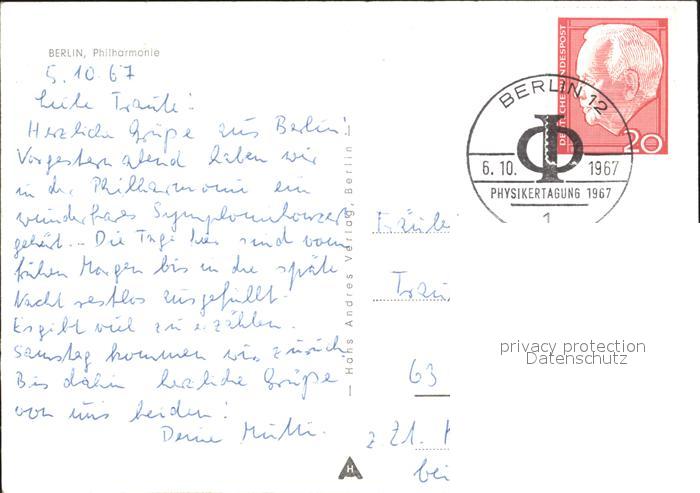 BERLIN, Philharmonie
5.10.67
Liebe Traute!
Herzliche Grüße aus Berlin!
Vorgestern abend haben wir
in der Philharmonie ein
wunderbares Symphoniekonzert
gehört... Die Tage hier sind vom
frühen Morgen bis in die späte
Nacht restlos ausgefüllt.
Es gibt viel zu erzählen.
Samstag kommen wir zurück
Bis dahin herzliche Grüße
von uns beiden!
Deine Mutti.
— Hans Andres Verlag, Berlin —
H
DEUTSCHE BUNDESPOST
20
BERLIN 12
6.10. 1967
PHYSIKERTAGUNG 1967
1
Fräulei
Trau
63
z. Zt.
bei
privacy protection
Datenschutz